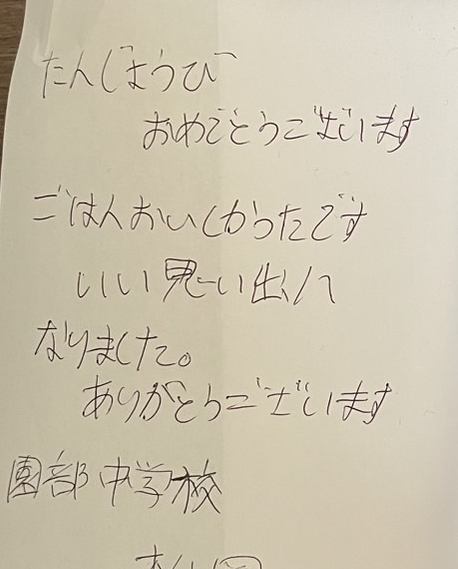 たんじょうび
おめでとうございます
ごはんおいしかったです
いい思い出に
なりました。
ありがとうございます
園部中学校